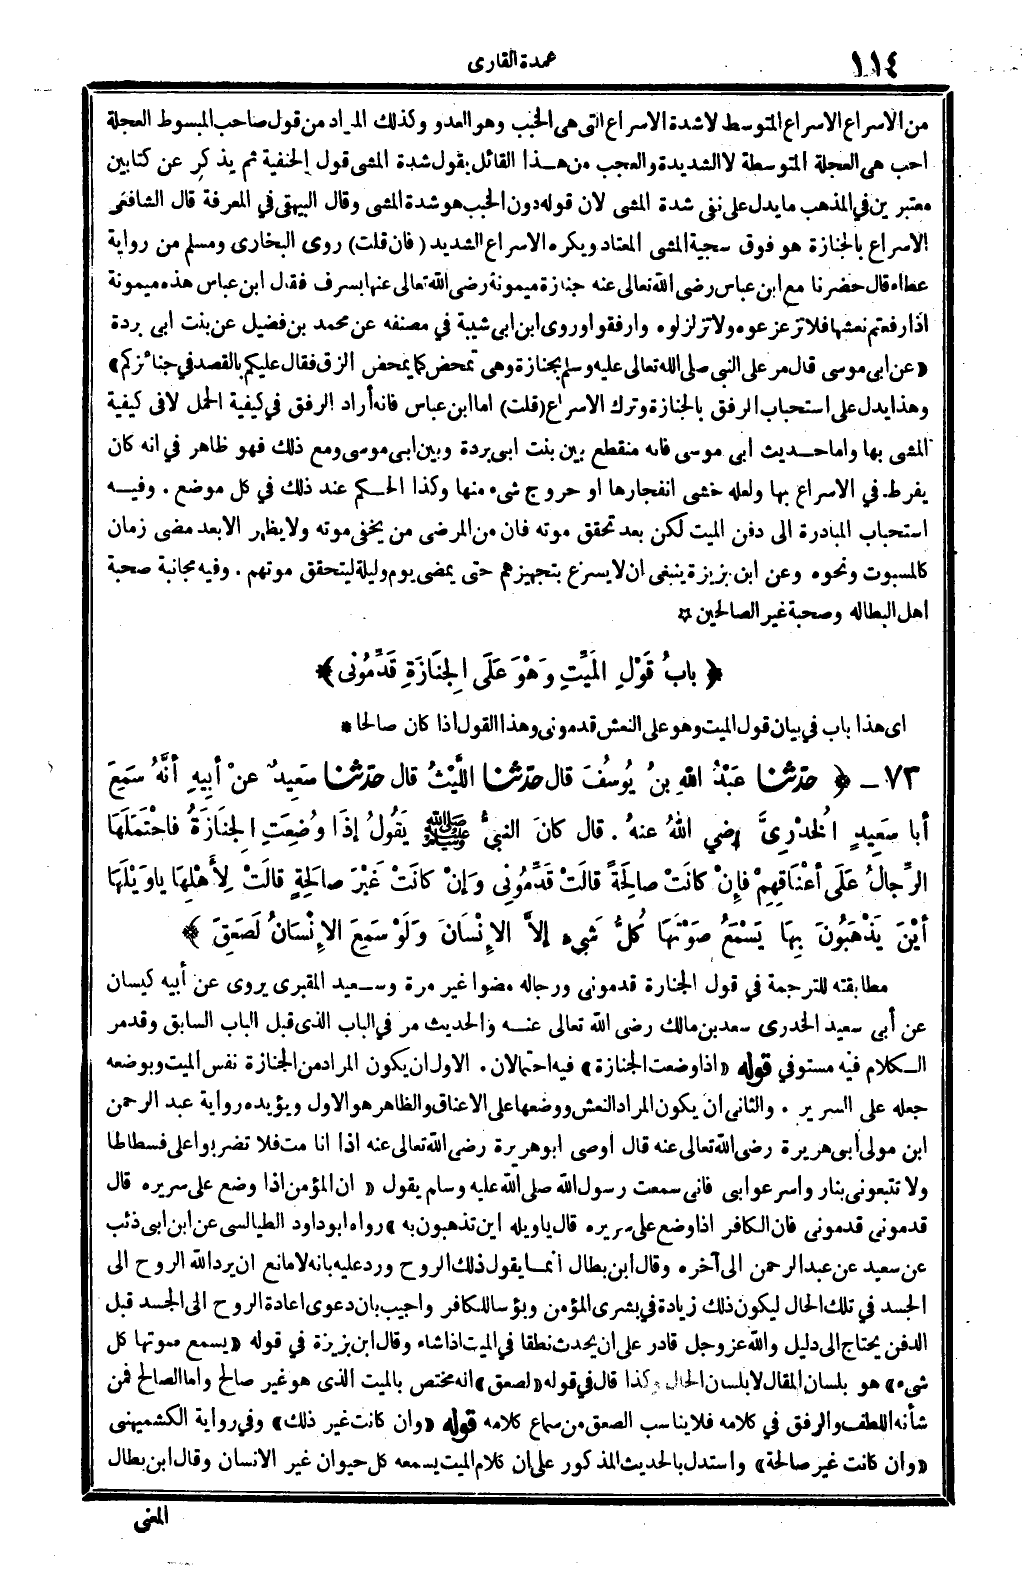 ١١٤
عمدة القارى
من الاسراع الاسراع المتوسط لا شدة الاسراع التى هى الخبب وهو العدو وكذلك المراد من قول صاحب المبسوط العجلة
احب هى العجلة المتوسطة لا الشديدة والعجب من هــذا القائل يقول شدة المشى قول الحنفية ثم يذكر عن كتابين
معتبرين فى المذهب ما يدل على نفى شدة المشى لان قوله دون الخبب هو شدة المشى وقال البيهقى في المعرفة قال الشافعى
الاسراع بالجنازة هو فوق سجية المشى المعتاد ويكره الاسراع الشديد ( فان قلت) روى البخارى ومسلم من رواية
عطاء قال حضرنا مع ابن عباس رضى الله تعالى عنه جنازة ميمونة رضى الله تعالى عنها بسرف فقال ابن عباس هذه ميمونة
اذا رفعتم نعشها فلا تزعزعوه ولا تزلزلوه وارفقوا وروى ابن ابى شيبة في مصنفه عن محمد بن فضيل عن بنت ابى بردة
«عن ابى موسى قال مر على النبى صلى الله تعالى عليه وسلم بجنازة وهى تمخض كما يمخض الزق فقال عليكم بالقصد في جنائزكم»
وهذا يدل على استحباب الرفق بالجنازة وترك الاسراع (قلت) اما ابن عباس فانه أراد الرفق في كيفية الحمل لا فى كيفية
المشى بها واما حــديث ابى موسى فانه منقطع بين بنت ابى بردة وبين ابى موسى ومع ذلك فهو ظاهر في انه كان
يفرط فى الاسراع بها ولعله خشى انفجارها او خروج شىء منها وكذا الحــكم عند ذلك في كل موضع . وفيــه
استحباب المبادرة الى دفن الميت لكن بعد تحقق موته فان من المرضى من يخفى موته ولا يظهر الا بعد مضى زمان
كالمسبوت ونحوه وعن ابن بزيزة ينبغى ان لا يسرع بتجهيزهم حتى يمضى يوم وليلة ليتحقق موتهم . وفيه مجانبة صحبة
اهل البطاله وصحبة غير الصالحين ✡
﴿ بابُ قَوْلِ المَيِّتِ وَهْوَ عَلَى الجِنَازَةِ قَدِّمُونى ﴾
اى هذا باب في بيان قول الميت وهو على النعش قدمونى وهذا القول اذا كان صالحا *
٧٣ ــ ﴿ حَدَّثَنَا عَبْدُ اللهِ بنُ يُوسُفَ قال حَدَّثَنَا اللَّيْثُ قال حَدَّثَنَا سَعِيدٌ عنْ أبِيهِ أنَّهُ سَمِعَ
أبا سَعِيدٍ الخُدْرِىَّ رضي اللهُ عنهُ . قال كانَ النبىُّ ﷺ يَقُولُ إذَا وُضِعَتِ الجِنَازَةُ فاحْتَمَلَهَا
الرِّجالُ عَلَى أعْنَاقِهِمْ فإِنْ كانَتْ صالِحَةً قالَتْ قَدِّمُونِى وَإِنْ كانَتْ غَيْرَ صالِحَةٍ قالَتْ لِأَهْلِهَا ياوَيْلَهَا
أيْنَ يَذْهَبُونَ بِهَا يَسْمَعُ صَوْتَهَا كُلُّ شَىْءٍ إلاَّ الإِنْسَانَ وَلَوْ سَمِعَ الإِنْسَانُ لَصَعِقَ ﴾
مطابقته للترجمة في قول الجنازة قدمونى ورجاله مضوا غير مرة وســعيد المقبرى يروى عن أبيه كيسان
عن أبى سعيد الخدرى سعد بن مالك رضى الله تعالى عنــه والحديث مر في الباب الذى قبل الباب السابق وقد مر
الــكلام فيه مستوفي قوله «اذا وضعت الجنازة» فيه احتمالان . الاول ان يكون المراد من الجنازة نفس الميت وبوضعه
جعله على السرير . والثانى ان يكون المراد النعش ووضعها على الاعناق والظاهر هو الاول ويؤيده رواية عبد الرحمن
ابن مولى أبى هريرة رضى الله تعالى عنه قال أوصى ابو هريرة رضى الله تعالى عنه اذا انا مت فلا تضربوا على فسطاطا
ولا تتبعونى بنار واسرعوا بى فانى سمعت رسول الله صلى الله عليه وسلم يقول « ان المؤمن اذا وضع على سريره قال
قدمونى قدمونى فان الكافر اذا وضع على سريره قال ياويله اين تذهبون به » رواه ابو داود الطيالسى عن ابن ابى ذئب
عن سعيد عن عبد الرحمن الى آخره وقال ابن بطال انمــا يقول ذلك الروح ورد عليه بانه لا مانع ان يرد الله الروح الى
الجسد في تلك الحال ليكون ذلك زيادة في بشرى المؤمن وبؤسا للكافر واجيب بان دعوى اعادة الروح الى الجسد قبل
الدفن يحتاج الى دليل والله عز وجل قادر على ان يحدث نطقا في الميت اذا شاء وقال ابن بزيزة في قوله «يسمع صوتها كل
شىء» هو بلسان المقال لا بلسان الحال وكذا قال في قوله «لصعق» انه مختص بالميت الذى هو غير صالح واما الصالح فمن
شأنه اللطف والرفق في كلامه فلا يناسب الصعق من سماع كلامه قوله «وان كانت غير ذلك» وفي رواية الكشميهنى
«وان كانت غير صالحة» واستدل بالحديث المذكور على ان كلام الميت يسمعه كل حيوان غير الانسان وقال ابن بطال
المعنى